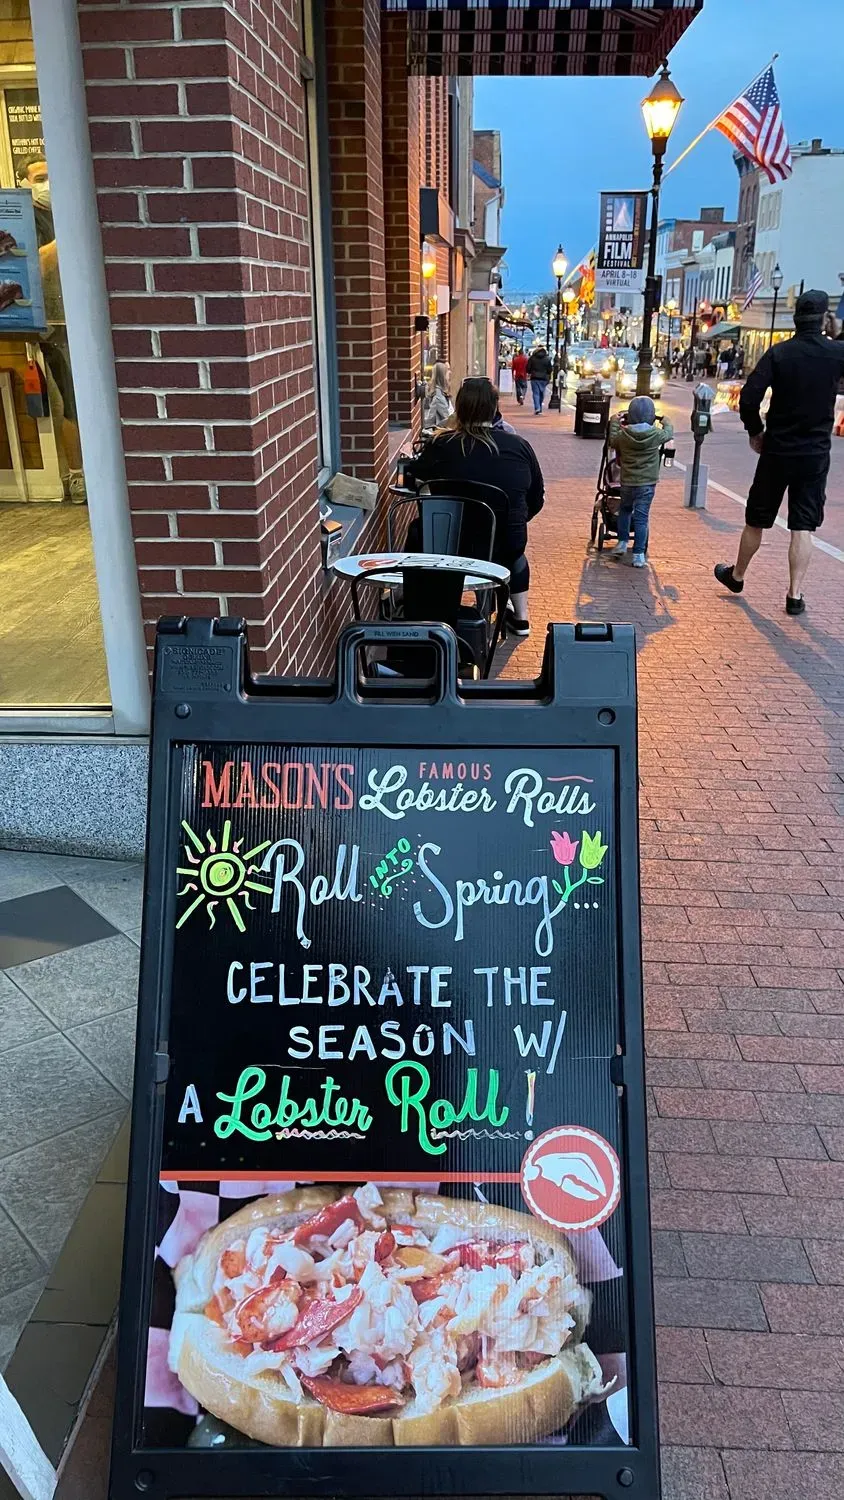 ANNAPOLIS
FILM
FESTIVAL
APRIL 8-18
VIRTUAL
FILL WITH SAND
SIGNICADE
DELUXE
MASON'S FAMOUS Lobster Rolls
Roll INTO Spring...
CELEBRATE THE
SEASON W/
A Lobster Roll!